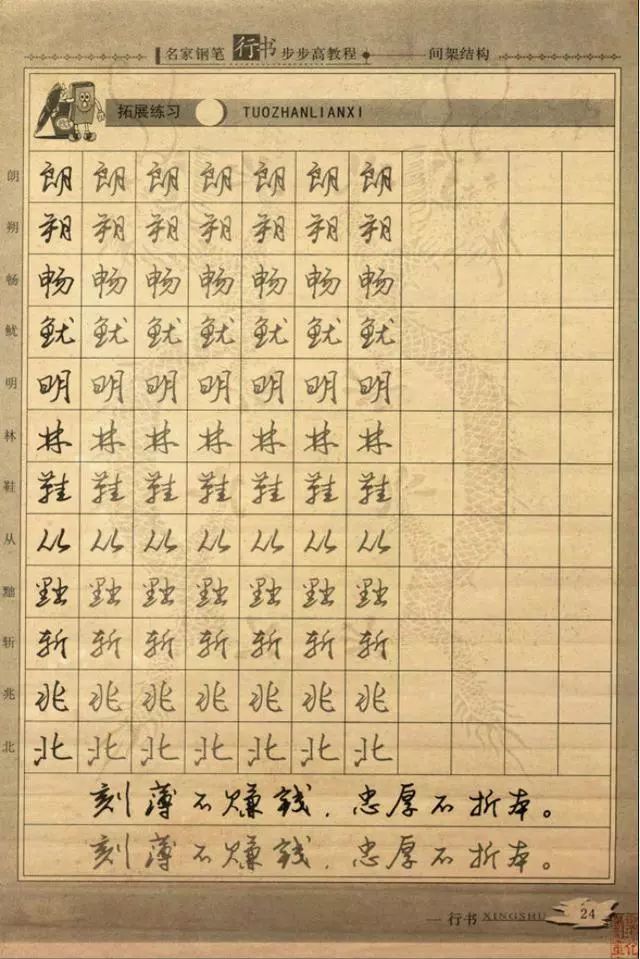 名家钢笔行书步步高教程 间架结构
拓展练习 TUOZHANLIANXI
朗 朗 朗 朗 朗 朗 朗 朗
朔 朔 朔 朔 朔 朔 朔 朔
畅 畅 畅 畅 畅 畅 畅 畅
鱿 鱿 鱿 鱿 鱿 鱿 鱿 鱿
明 明 明 明 明 明 明 明
林 林 林 林 林 林 林 林
鞋 鞋 鞋 鞋 鞋 鞋 鞋 鞋
从 从 从 从 从 从 从 从
黜 黜 黜 黜 黜 黜 黜 黜
斩 斩 斩 斩 斩 斩 斩 斩
兆 兆 兆 兆 兆 兆 兆 兆
北 北 北 北 北 北 北 北
刻薄不赚钱，忠厚不折本。
刻薄不赚钱，忠厚不折本。
一行书 XINGSHU 24